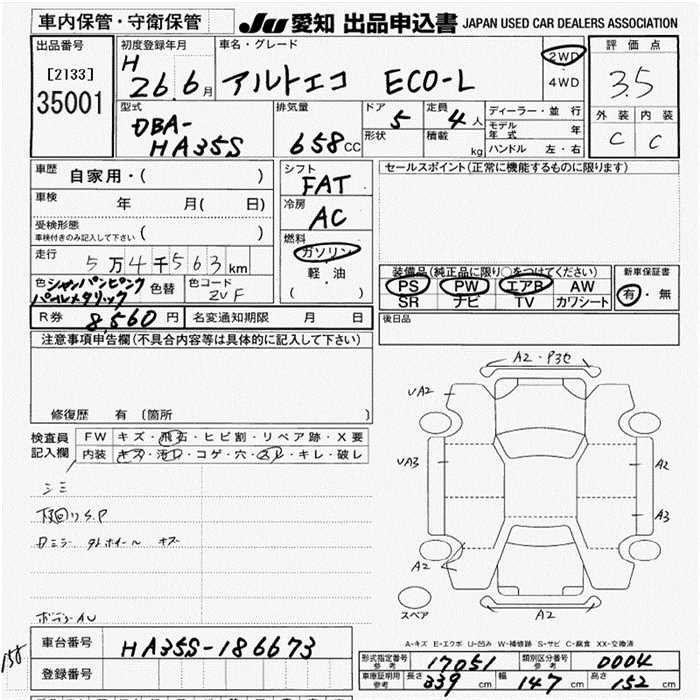 車内保管・守衛保管 JU 愛知 出品申込書 JAPAN USED CAR DEALERS ASSOCIATION
出品番号
[2133]
35001
初度登録年月
H 26.6月
車名・グレード
アルトエコ ECO-L
2WD
・
4WD
評価点
3.5
外装 内装
C C
型式
DBA-
HA35S
排気量
658cc
ドア 5
形状
定員 4人
積載 kg
ディーラー・並行
モデル年式 年
ハンドル 左・右
車歴 自家用・( )
車検 年 月( 日)
受検形態
車検付きのみ記入して下さい ( )
走行 5万4千563km
色 シャンパンピンク
パールメタリック
色替
色コード
ZVF
シフト
FAT
冷房
AC
燃料
ガソリン
軽・油
( )
セールスポイント(正常に機能するものに限ります)
装備品(純正品に限り○をつけてください)
PS PW エアB AW
SR ナビ TV カワシート
新車保証書
有・無
R券 8,560円 名変通知期限 月 日
後日品
注意事項申告欄(不具合内容等は具体的に記入して下さい)
修復歴 有〔箇所 〕
検査員
記入欄
FW キズ・飛石・ヒビ割・リペア跡・X要
内装 キズ・汚レ・コゲ・穴・スレ・キレ・破レ
シミ
下回りS.P
Dミラー タトホイール キズ
ボデーAU
A2・P3セ
UA2
UA3
A2
A3
A2
A2
スペア
A-キズ E-エクボ U-凹み W-補修跡 S-サビ C-腐食 XX-交換済
158
車台番号 HA35S-186673
登録番号
形式指定番号
参考
17051
類別区分番号
参考
0004
車庫証明用
参考
長さ 339cm 幅 147cm 高さ 152cm